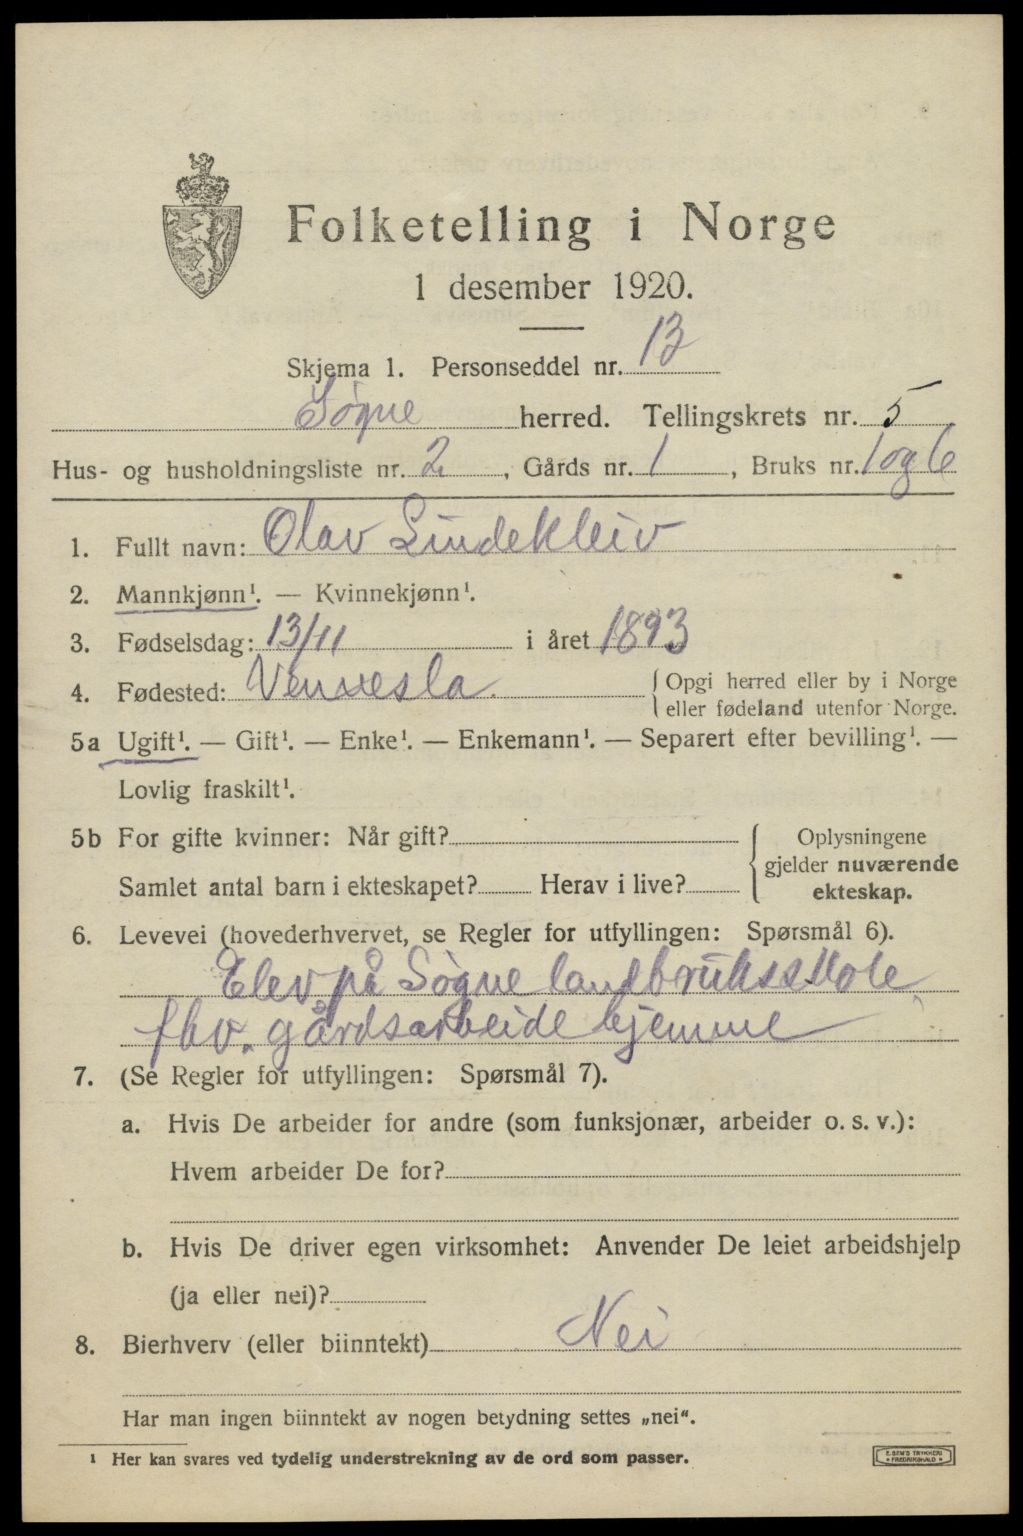 Folketelling i Norge
1 desember 1920.
Skjema 1. Personseddel nr. 13
Søgne herred. Tellingskrets nr. 5
Hus- og husholdningsliste nr. 2, Gårds nr. 1, Bruks nr. 1 og 6
1. Fullt navn: Olav Lindekleiv
2. Mannkjønn¹. — Kvinnekjønn¹.
3. Fødselsdag: 13/11 i året 1893
4. Fødested: Vennesla. { Opgi herred eller by i Norge
eller fødeland utenfor Norge.
5a Ugift¹. — Gift¹. — Enke¹. — Enkemann¹. — Separert efter bevilling¹. —
Lovlig fraskilt¹.
5b For gifte kvinner: Når gift?
Samlet antal barn i ekteskapet? Herav i live?
Oplysningene
gjelder nuværende
ekteskap.
6. Levevei (hovederhvervet, se Regler for utfyllingen: Spørsmål 6).
Elev på Søgne landbruksskole
fhv. gårdsarbeide hjemme
7. (Se Regler for utfyllingen: Spørsmål 7).
a. Hvis De arbeider for andre (som funksjonær, arbeider o. s. v.):
Hvem arbeider De for?
b. Hvis De driver egen virksomhet: Anvender De leiet arbeidshjelp
(ja eller nei)?
8. Bierhverv (eller biinntekt) Nei
Har man ingen biinntekt av nogen betydning settes „nei“.
¹ Her kan svares ved tydelig understrekning av de ord som passer.
E. SEM'S TRYKKERI
FREDRIKSHALD